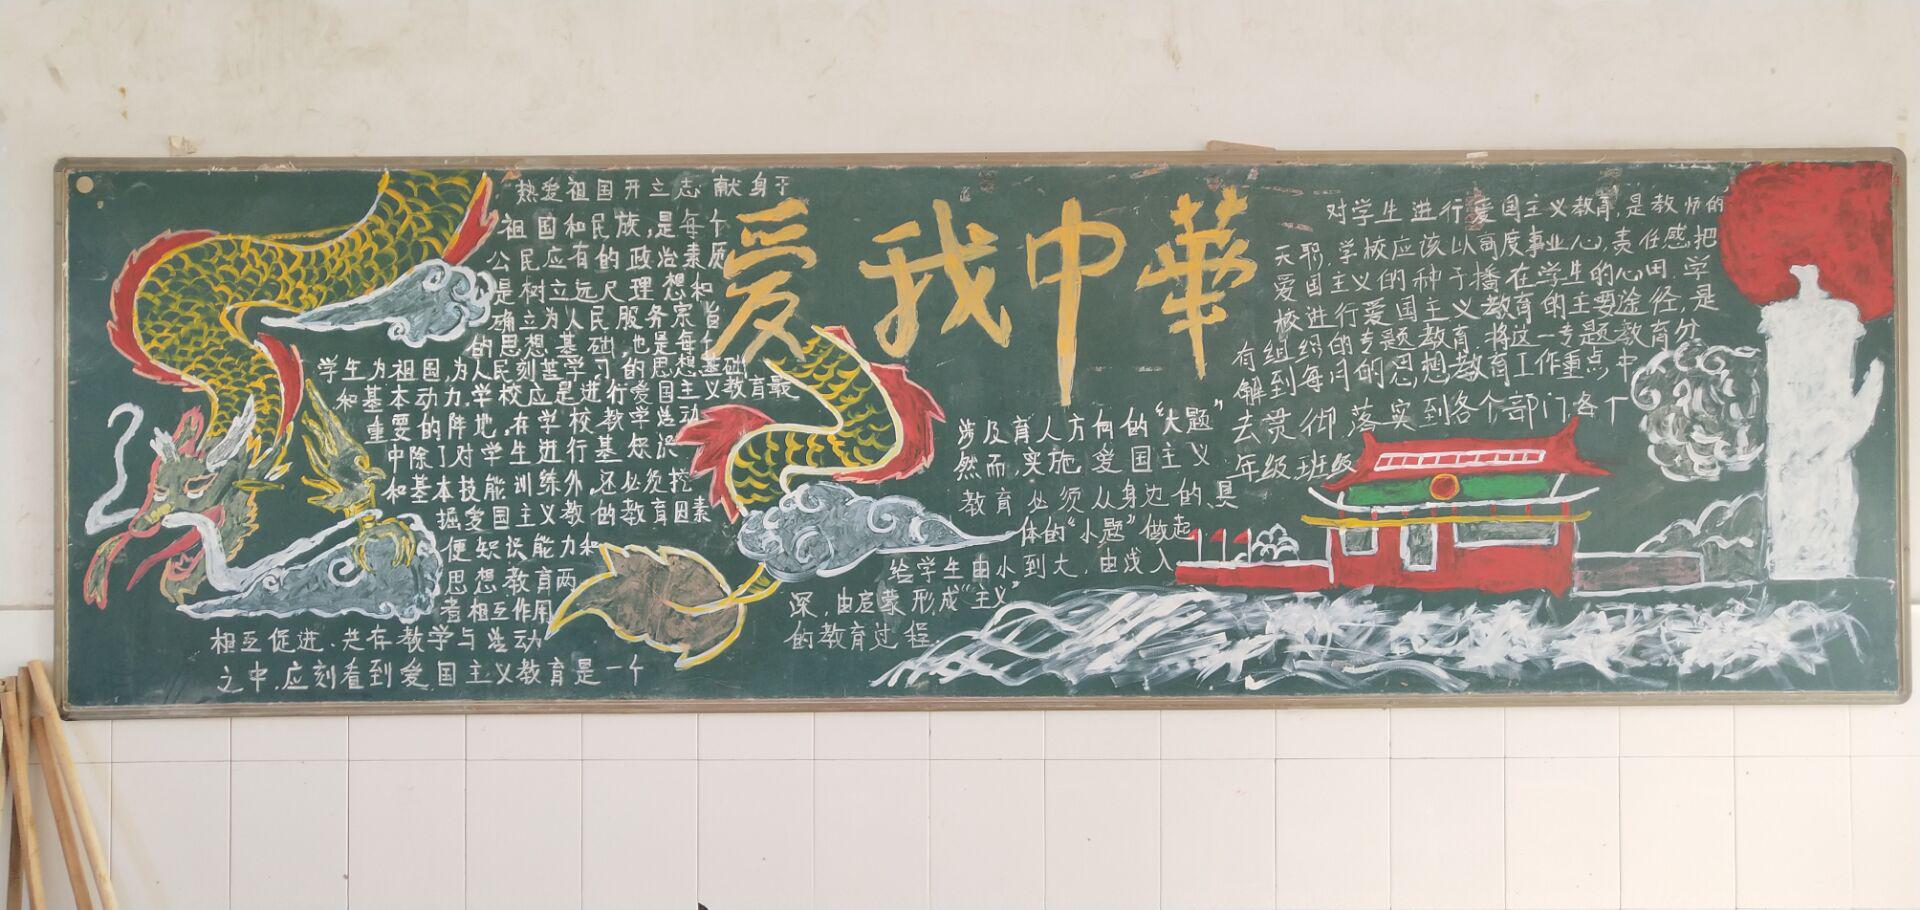 爱我中華
热爱祖国开立志献身于
祖国和民族,是每个
公民应有的政治素质
是树立远尺理想和
确立为人民服务宗旨
的思想基础,也是每个
学生为祖国,为人民刻苦学习的思想基础
和基本动力,学校应是进行爱国主义教育最
重要的阵地,在学校教学活动
中除了对学生进行基知识
和基本技能训练外,还必须挖
掘爱国主义教的教育因素
使知识能力和
思想教育两
者相互作用
相互促进.共存教学与活动
之中,应刻看到爱国主义教育是一个
涉及育人方向的“大题”
然而,实施爱国主义
教育必须从身边的、具
体的“小题”做起
给学生由小到大,由浅入
深,由启蒙形成“主义”
的教育过程.
对学生进行爱国主义教育,是教师的
天职,学校应该以高度事业心,责任感把
爱国主义的种子播在学生的心田,学
校进行爱国主义教育的主要途径,是
有组织的专题教育,将这一专题教育分
解到每月的思想教育工作重点中
去贯彻落实到各个部门各个
年级班级